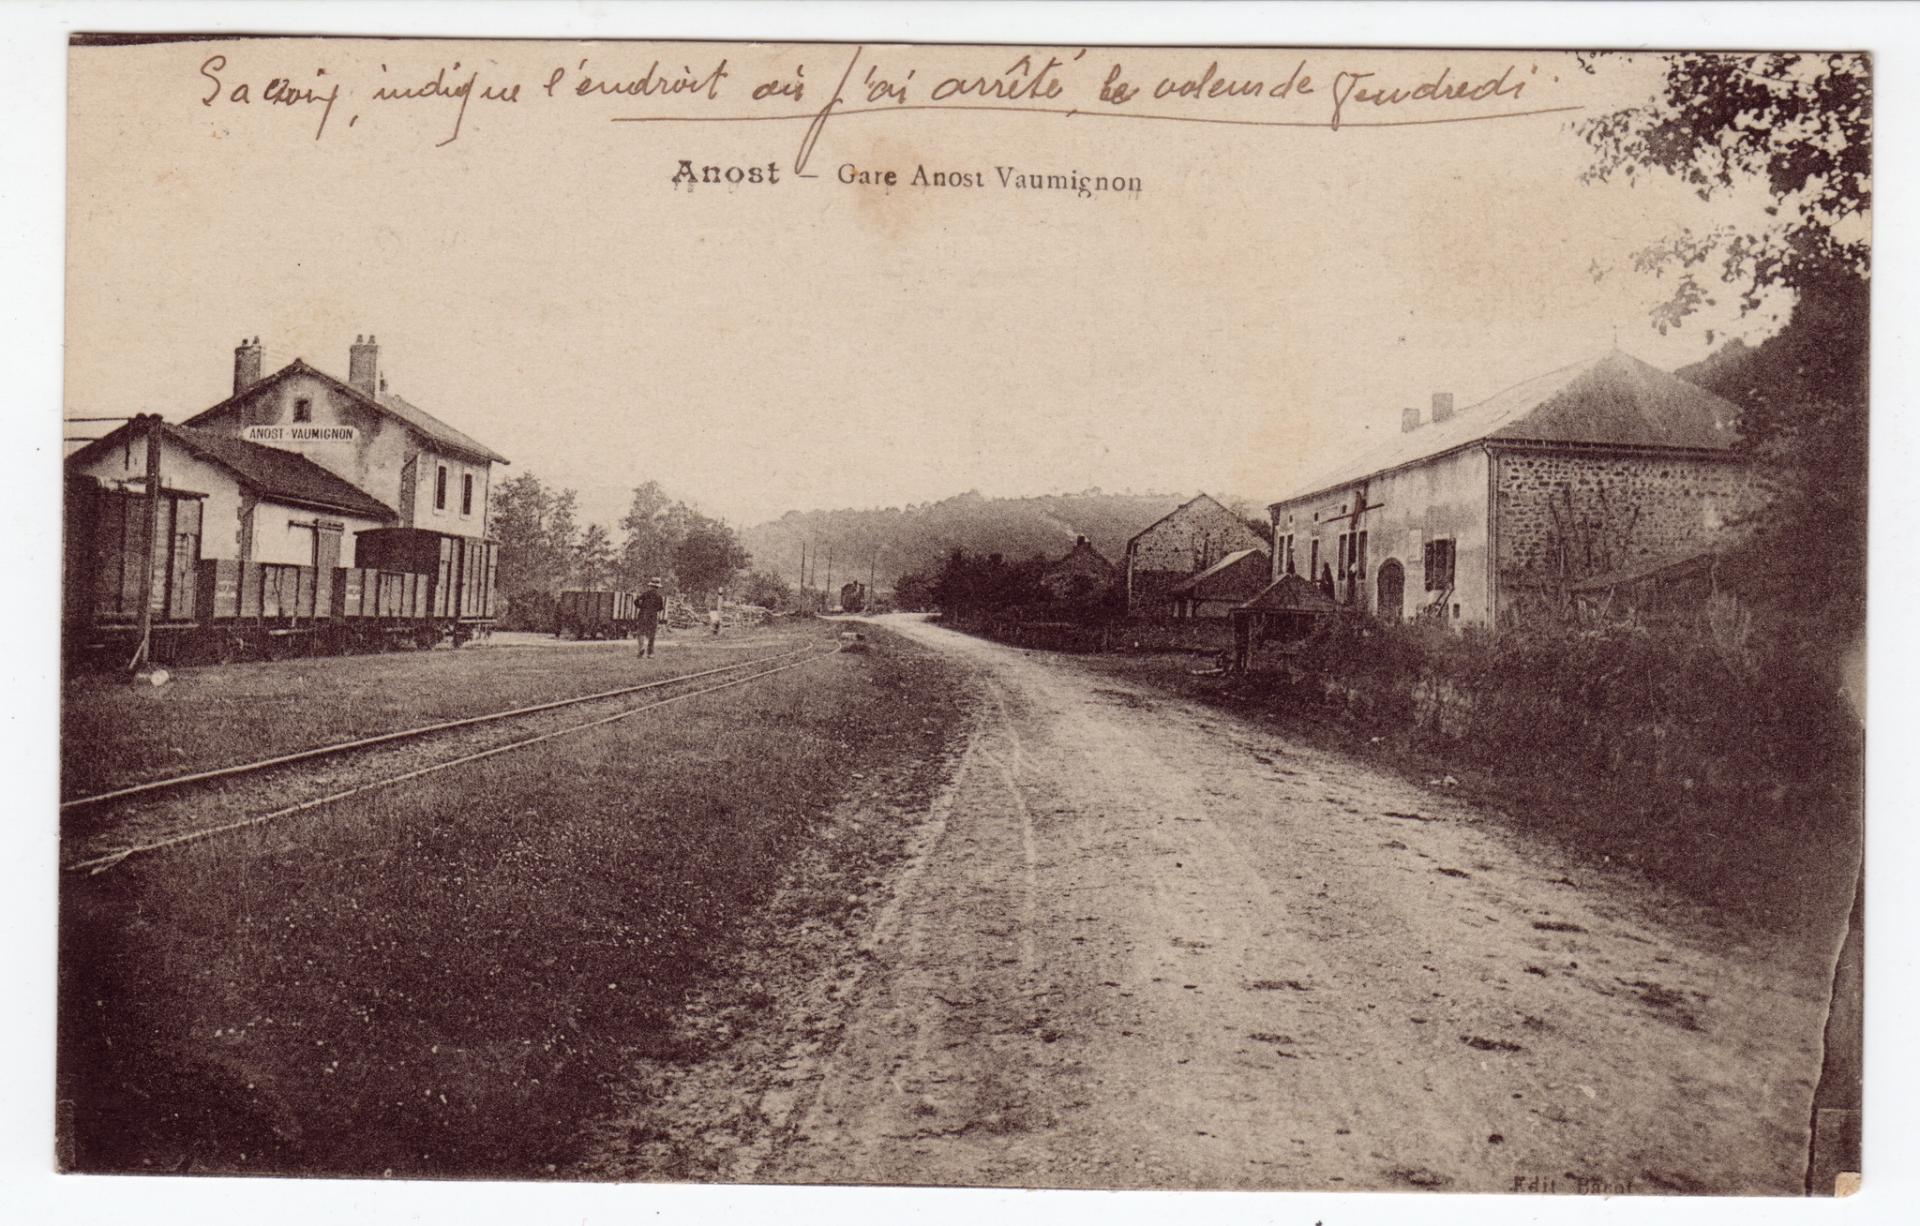 La croix, indique l'endroit où j'ai arrêté le voleur de Vendredi.
Anost – Gare Anost Vaumignon
ANOST-VAUMIGNON
Edit. Barot